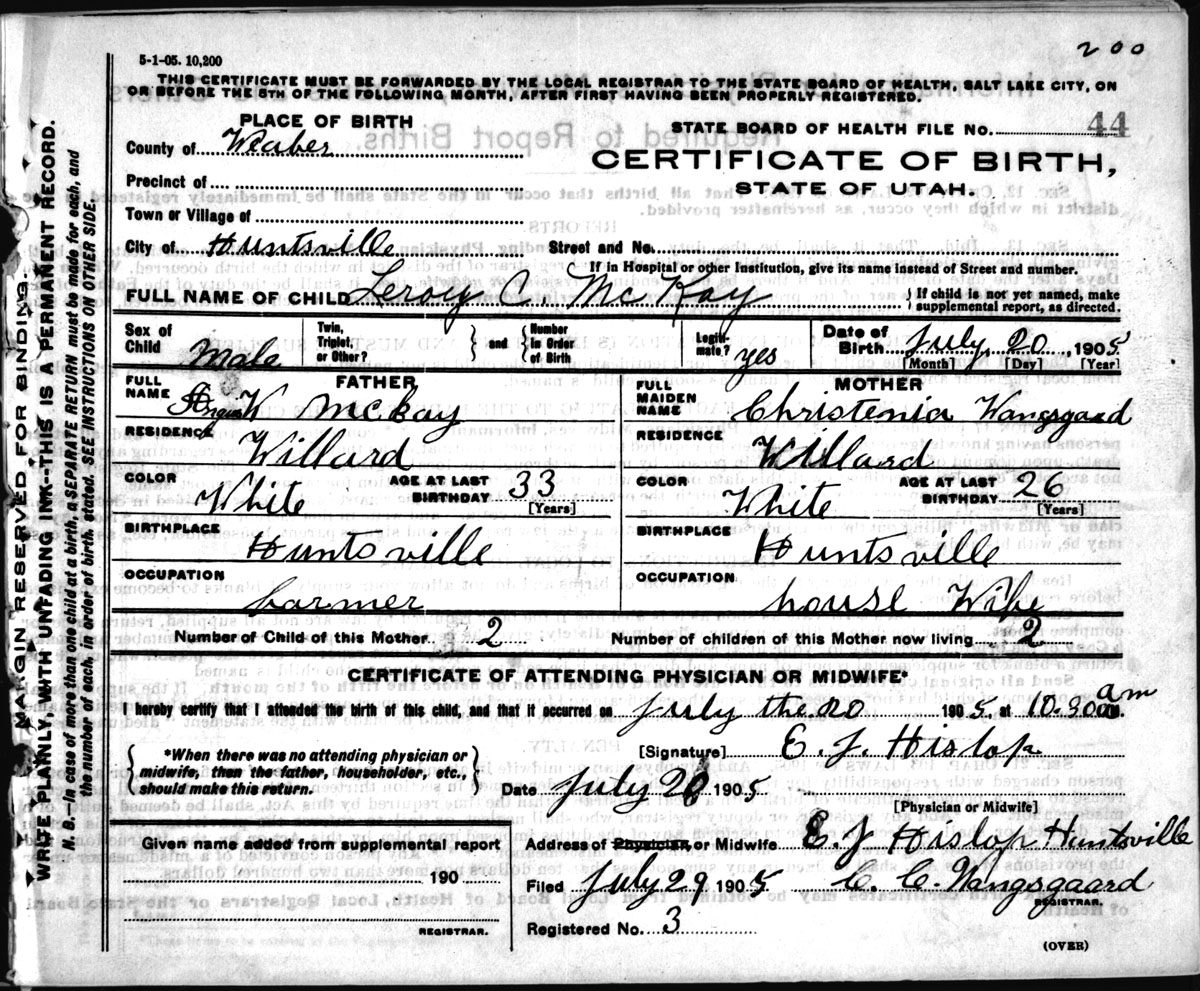 200
5-1-05. 10,200
THIS CERTIFICATE MUST BE FORWARDED BY THE LOCAL REGISTRAR TO THE STATE BOARD OF HEALTH, SALT LAKE CITY, ON
OR BEFORE THE 5TH OF THE FOLLOWING MONTH, AFTER FIRST HAVING BEEN PROPERLY REGISTERED.
PLACE OF BIRTH
STATE BOARD OF HEALTH FILE No. 44
County of Weaber
CERTIFICATE OF BIRTH,
STATE OF UTAH.
Precinct of
Town or Village of
City of Huntsville Street and No.
If in Hospital or other Institution, give its name instead of Street and number.
FULL NAME OF CHILD Leroy C. McKay { If child is not yet named, make
supplemental report, as directed.
Sex of Child Male
Twin, Triplet, or Other? } and { Number in Order of Birth
Legitimate? yes
Date of Birth July 20, 1905
[Month] [Day] [Year]
FATHER
FULL NAME Angus W McKay
RESIDENCE
Willard
COLOR White AGE AT LAST BIRTHDAY 33
[Years]
BIRTHPLACE
Huntsville
OCCUPATION
farmer
MOTHER
FULL MAIDEN NAME Christenia Wangsgaad
RESIDENCE
Willard
COLOR White AGE AT LAST BIRTHDAY 26
[Years]
BIRTHPLACE
Huntsville
OCCUPATION
house Wife
Number of Child of this Mother 2 Number of children of this Mother now living 2
CERTIFICATE OF ATTENDING PHYSICIAN OR MIDWIFE*
I hereby certify that I attended the birth of this child, and that it occurred on July the 20 1905, at 10.30 am
{ *When there was no attending physician or
midwife, then the father, householder, etc.,
should make this return. }
[Signature] E. J. Hislop
Date July 20 1905
[Physician or Midwife]
Given name added from supplemental report
190
REGISTRAR.
Address of Physician, or Midwife E. J Hislop Huntsville
Filed July 29 1905 C. C. Wangsgaard
REGISTRAR.
Registered No. 3
(OVER)
MARGIN RESERVED FOR BINDING.
WRITE PLAINLY, WITH UNFADING INK--THIS IS A PERMANENT RECORD.
N. B.--In case of more than one child at a birth, a SEPARATE RETURN must be made for each, and
the number of each, in order of birth, stated. SEE INSTRUCTIONS ON OTHER SIDE.